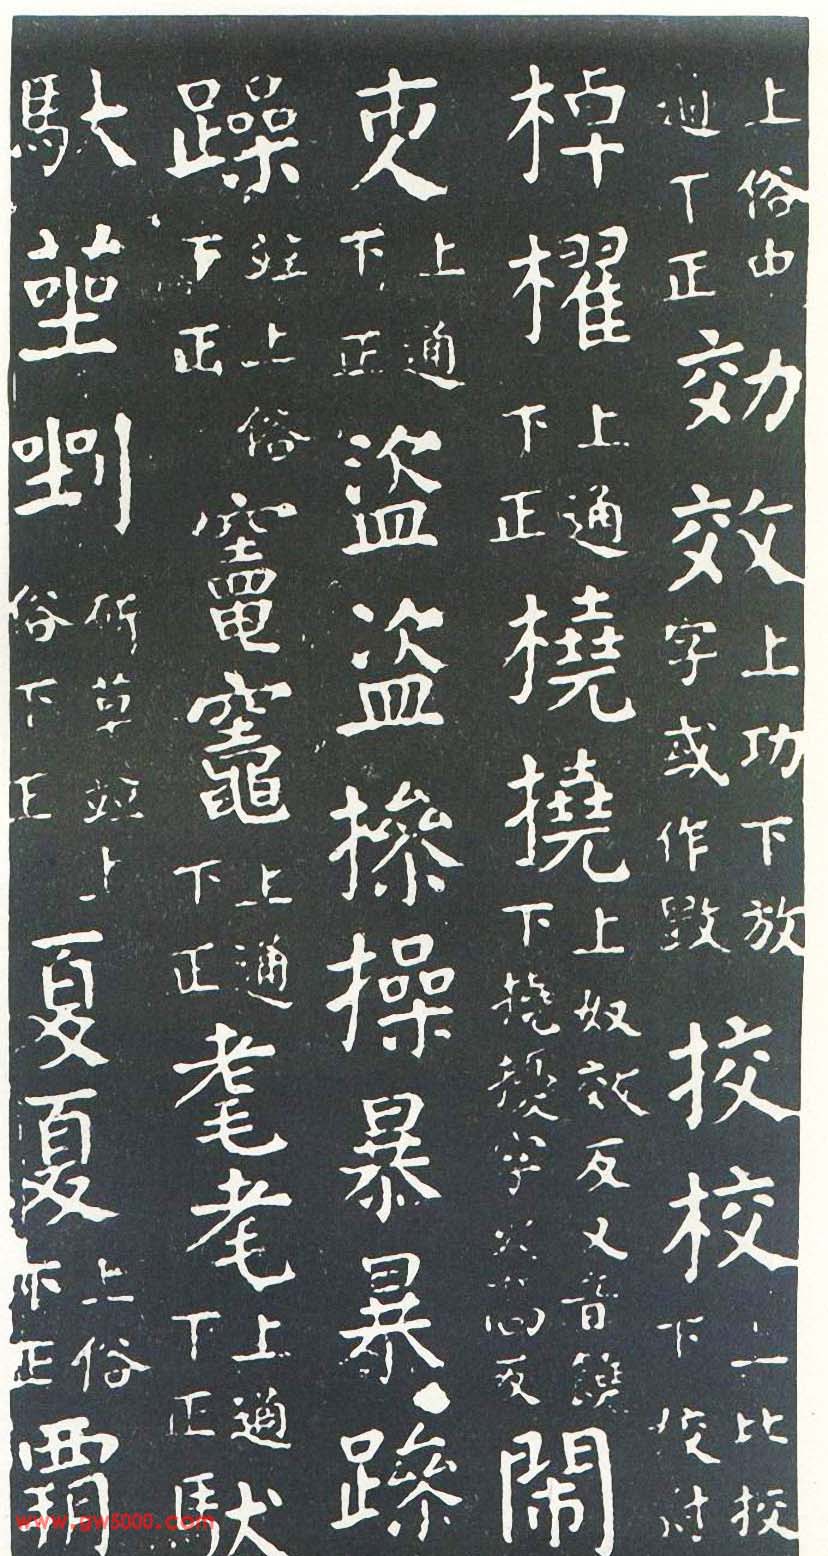 上俗中通下正効效上功下放字或作斅挍校上比挍下校尉
棹櫂上通下正橈撓上奴效反又音饒下撓擾字火高反閙
上通下正盗盜摻操暴暴跾
躁並上俗下正竈竈上通下正耄耄上通下正馱
馱莝剉斫草並上俗下正夏夏上俗下正覇
www.gw5000.com